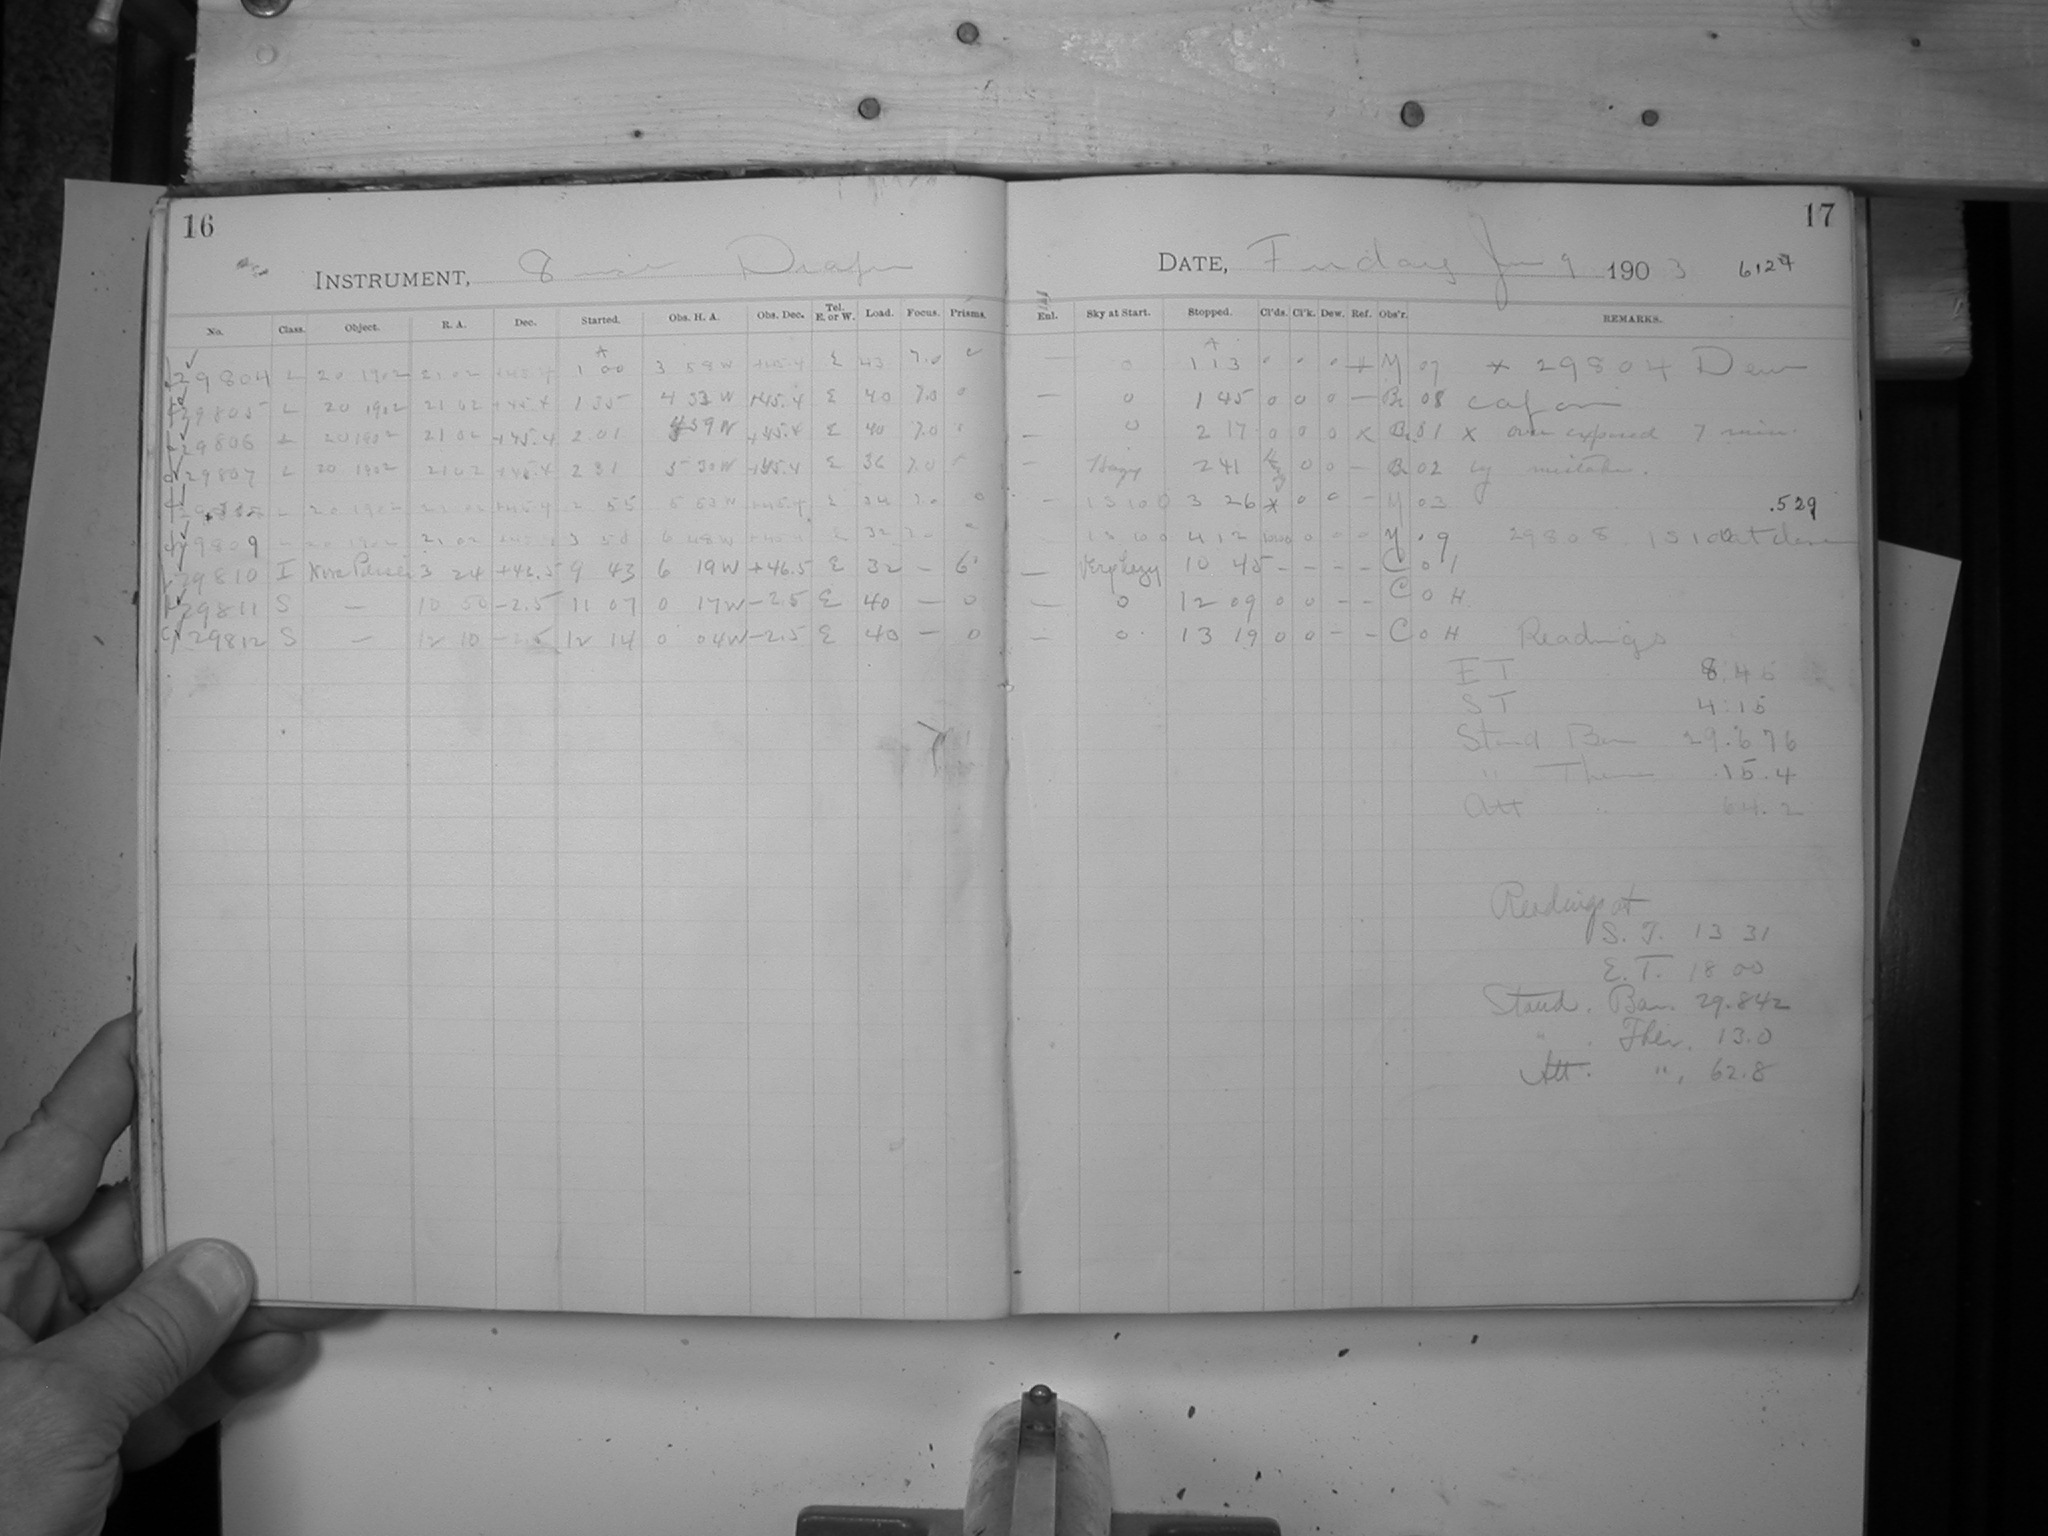 16
INSTRUMENT, 8 inch Draper
No. Class. Object. R. A. Dec. Started. Obs. H. A. Obs. Dec. Tel. E. or W. Load. Focus. Prisms.
29804 L 20 1902 21 02 +45.4 A 1 00 3 58 W +45.4 E 43 7.0 0
29805 L 20 1902 21 02 +45.4 1 35 4 33 W +45.4 E 40 7.0 0
29806 L 20 1902 21 02 +45.4 2 01 4 59 W +45.4 E 40 7.0
29807 L 20 1902 21 02 +45.4 2 31 5 30 W +45.4 E 36 7.0
L 20 1902 21 02 +45.4 2 55 5 53 W +45.4 E 34 7.0 0
29809 L 20 1902 21 02 +45.4 3 50 6 48 W +45.4 E 32 7.0
29810 I Nova Persei 3 24 +46.5 9 43 6 19 W +46.5 E 32 — 6
29811 S — 10 50 -2.5 11 07 0 17 W -2.5 E 40 — 0
29812 S — 12 10 -2.5 12 14 0 04 W -2.5 E 40 — 0
17
DATE, Friday Jan 9 1903 6127
Enl. Sky at Start. Stopped. Cl'ds. Cl'k. Dew. Ref. Obs'r. REMARKS.
— 0 A 1 13 0 0 0 + M 07 * 29804 Dew
— 0 1 45 0 0 0 — Br 08 cap on
— 0 2 17 0 0 0 x Br 01 x over exposed 7 min.
— Hazy 2 41 0 0 — Br 02 by mistake.
— 1 S 10 0 3 26 * 0 0 — M 03 .529
1 S 10 0 4 12 0 0 0 M 09 29808. 1 S 10 0 at close
— Very hazy 10 45 - - - - C 01
— 0 12 09 0 0 - - C 0 H
— 0 13 19 0 0 - - C 0 H Readings
E T 8:45
S T 4:15
Stand Bar 29.676
" Ther 15.4
Att 64.2
Readings at
S. T. 13 31
E. T. 18 00
Stand. Bar. 29.842
" Ther. 13.0
Att. ", 62.8